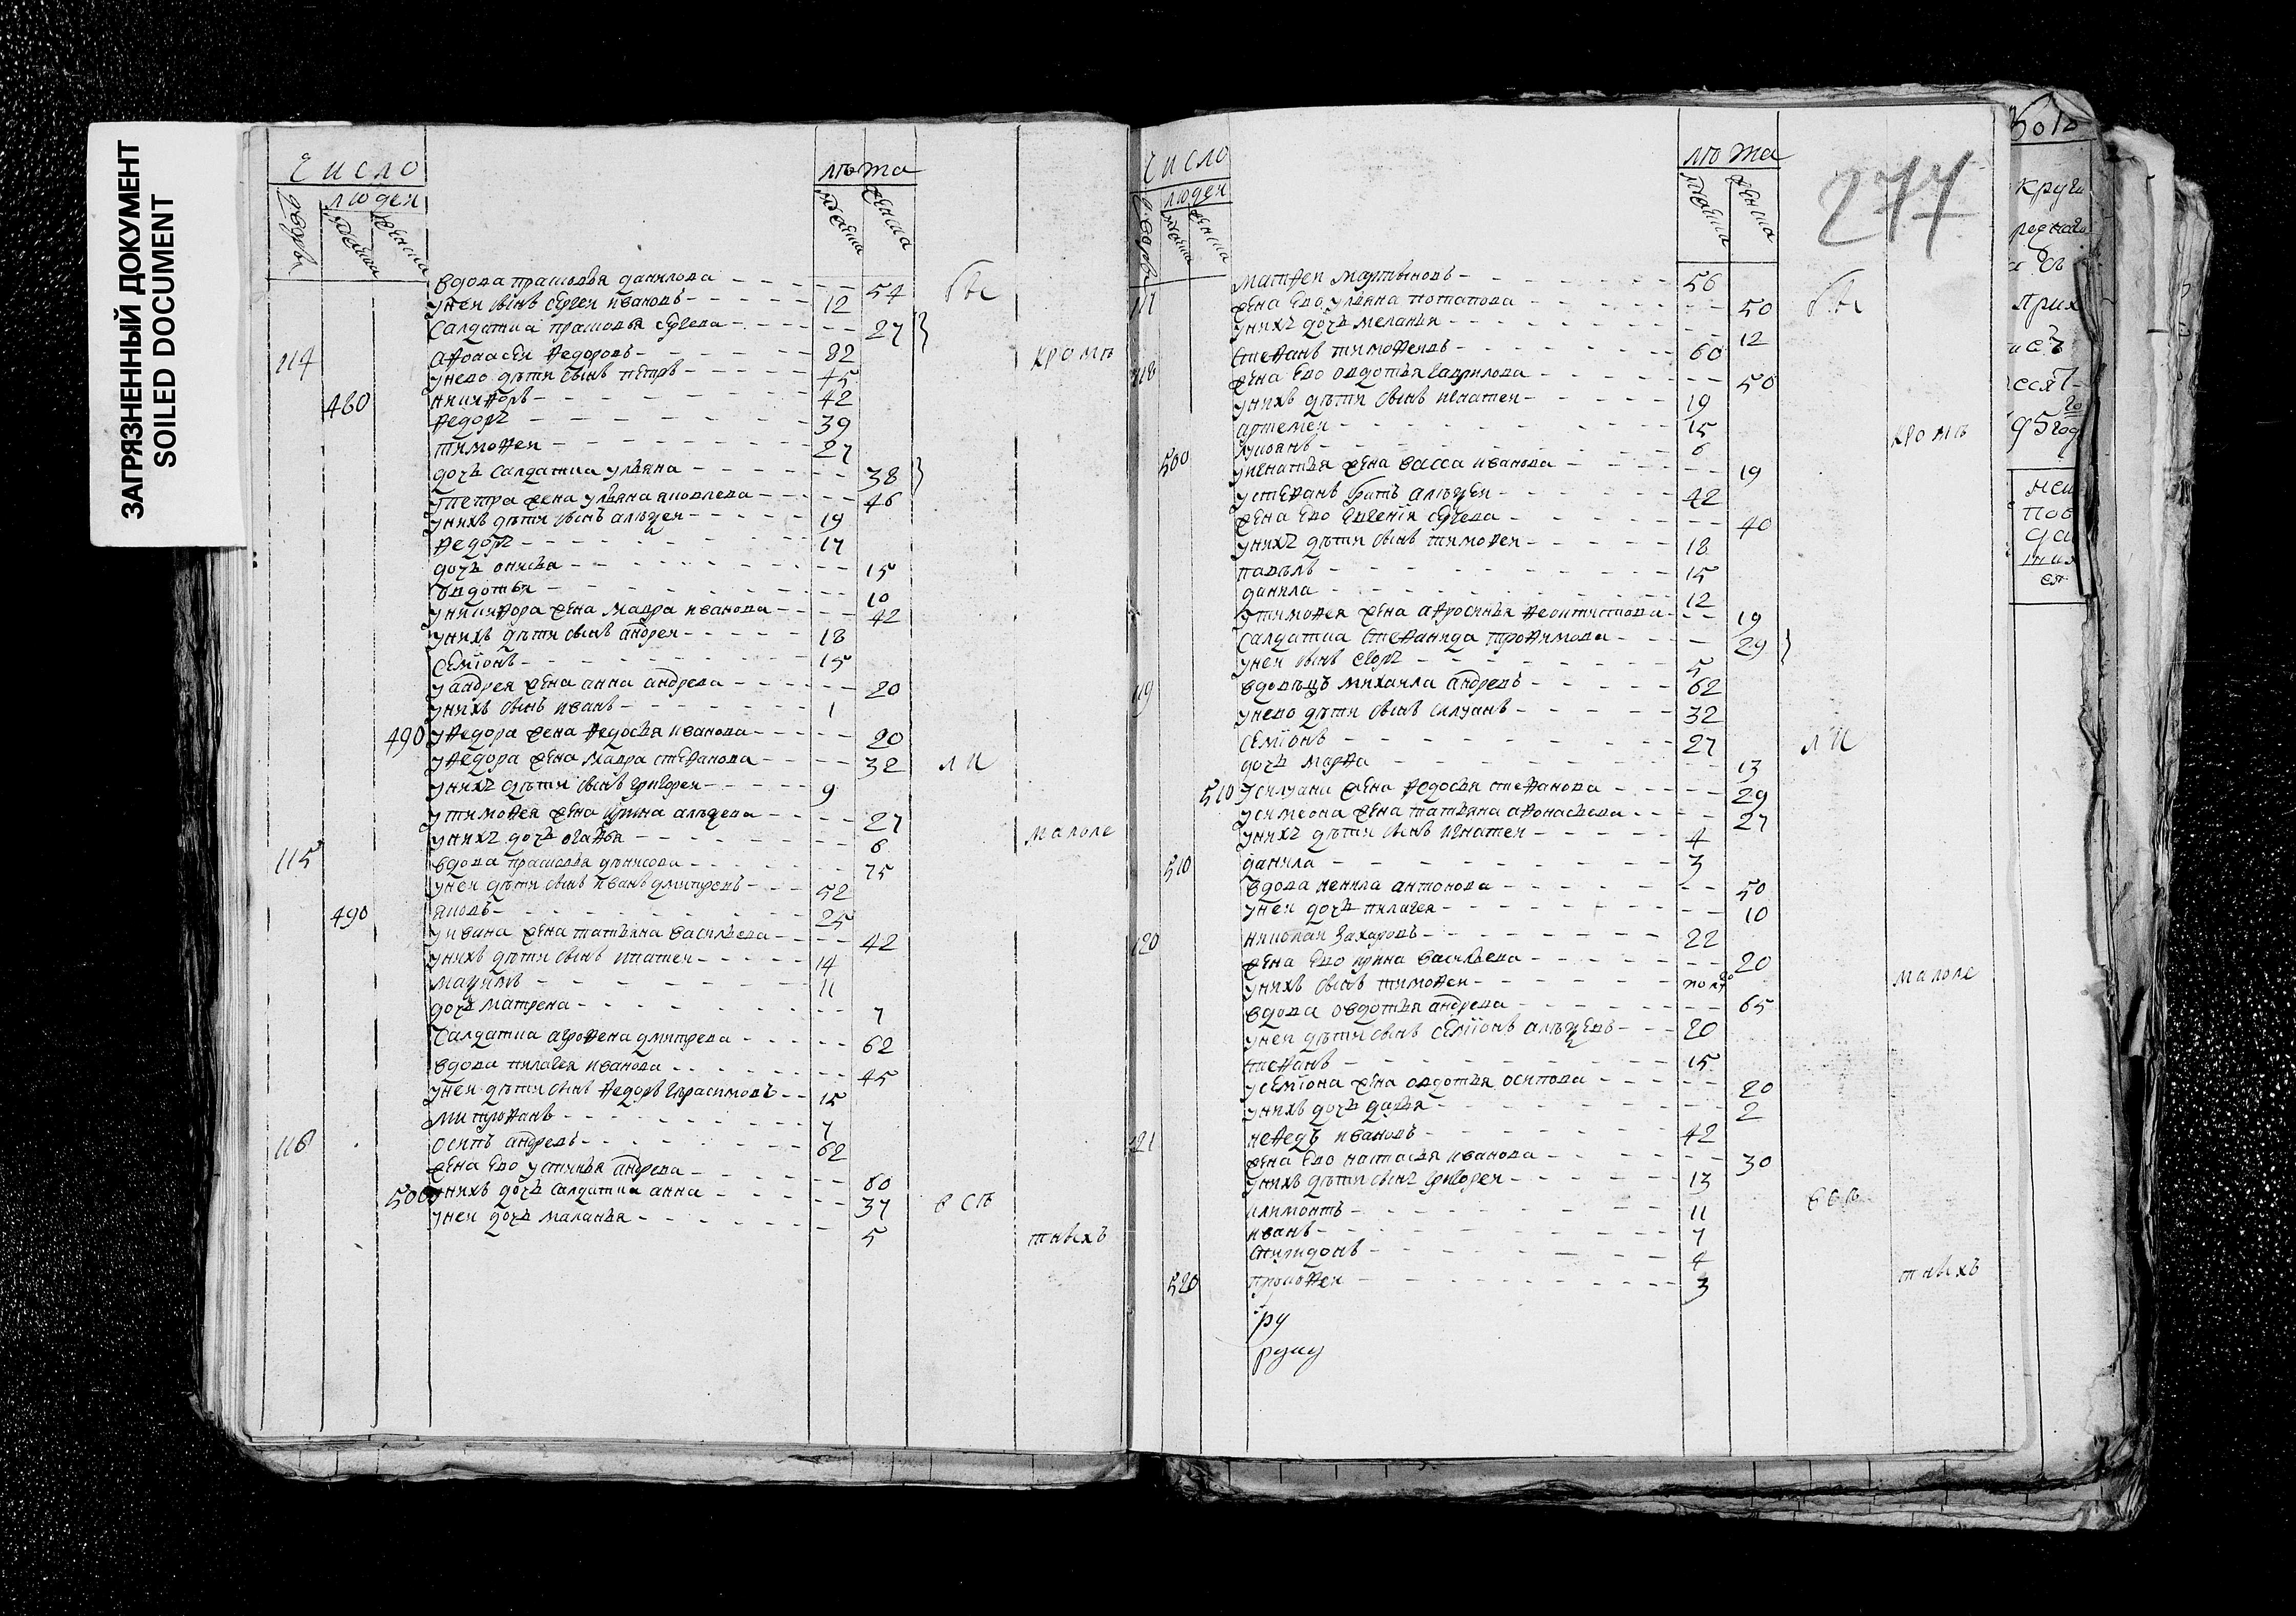 ЗАГРЯЗНЕННЫЙ ДОКУМЕНТ
SOILED DOCUMENT
Число лѣта
людей
вдова прасковья данилова 54 бы
у ней сынъ сергей ивановъ 12
салдатка прасковья сергева 27
114 афонасей федоровъ 82 кромѣ
у нево дѣти сынъ петръ 45
480 никифоръ 42
федоръ 39
тимофей 27
дочь салдатка ульяна 38
у петра жена ульяна яковлева 46
у нихъ дѣти сынъ алѣѯей 19
федоръ 17
дочь онисья 15
овдотья 10
у никифора жена мавра иванова 42
у нихъ дѣти сынъ андрей 18
семіонъ 15
у андрея жена анна андрева 20
у нихъ сынъ иванъ 1
490 у федора жена федосья иванова 20
у федора жена мавра стефанова 32 ли
у нихъ дѣти сынъ григорей 9
у тимофея жена ирина алѣѯева 27
у нихъ дочь огафья 6 малоле
115 вдова прасковья дѣнисова 75
у ней дѣти сынъ иванъ дмитревъ 52
490 яковъ 25
у ивана жена татьяна васильева 42
у нихъ дѣти сынъ игнатей 14
маѯимъ 11
дочь матрена 7
салдатка агрофена дмитрева 62
вдова пилагея иванова 45
у ней дѣти сынъ федоръ герасимовъ 15
митрофанъ 7
116 осипъ андревъ 62
жена ево устинья андрева 60
500 у нихъ дочь салдатка анна 37 всѣ
у ней дочь маланья 5 тныхъ
Число лѣта 277
людей
117 матфей мартыновъ 56
жена ево ульяна потапова 50 бы
у нихъ дочь меланья 12
118 стефанъ тимофеевъ 60
жена ево овдотья гаврилова 50
у нихъ дѣти сынъ игнатей 19
артемей 15 кромѣ
500 лукоянъ 6
у игнатья жена васса иванова 19
у стефана братъ алѣѯей 42
жена ево евгенія сергева 40
у нихъ дѣти сынъ тимофей 18
павѣлъ 15
данила 12
у тимофея жена афросинья феоктистова 19
салдатка стефанида трофимова 29
у ней сынъ егоръ 5
119 вдовѣцъ михаила андревъ 62
у нево дѣти сынъ силуанъ 32
семіонъ 27 ли
дочь марфа 13
510 у силуана жена федосья стефанова 29
у симеона жена татьяна афонасьева 27
у нихъ дѣти сынъ игнатей 4
510 данила 3
вдова ненила антонова 50
у ней дочь пилагея 10
120 николай захаровъ 22
жена ево ирина васильева 20
у нихъ сынъ тимофей малоле
вдова овдотья андрева 65
у ней дѣти сынъ семіонъ алѣѯевъ 20
стефанъ 15
у семіона жена овдотья осипова 20
у нихъ дочь дарья 2
121 нефедъ ивановъ 42
жена ево настасья иванова 30
у нихъ дѣти сынъ григорей 13
климонтъ 11
иванъ 7
спиридонъ 4
520 прокофей 3 тныхъ
ру
руку